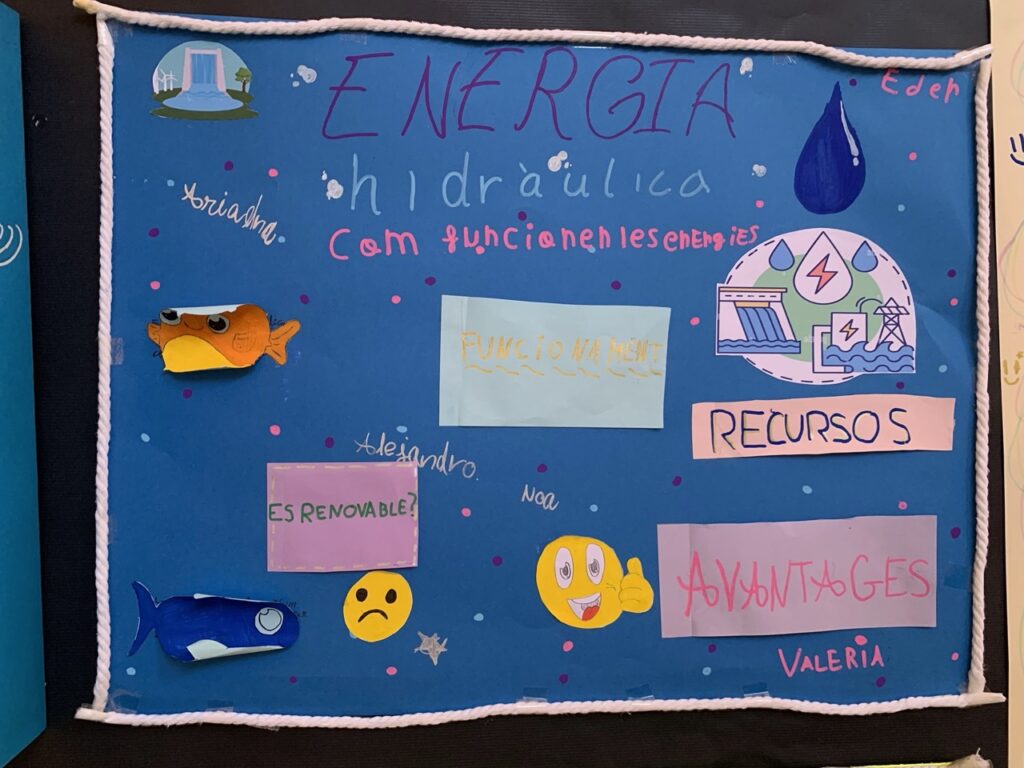 ENERGIA
Eden
hidràulica
Ariadna
Com funcionen les energies
FUNCIONAMENT
RECURSOS
Alejandro.
Noa
ES RENOVABLE?
AVANTAGES
VALERIA